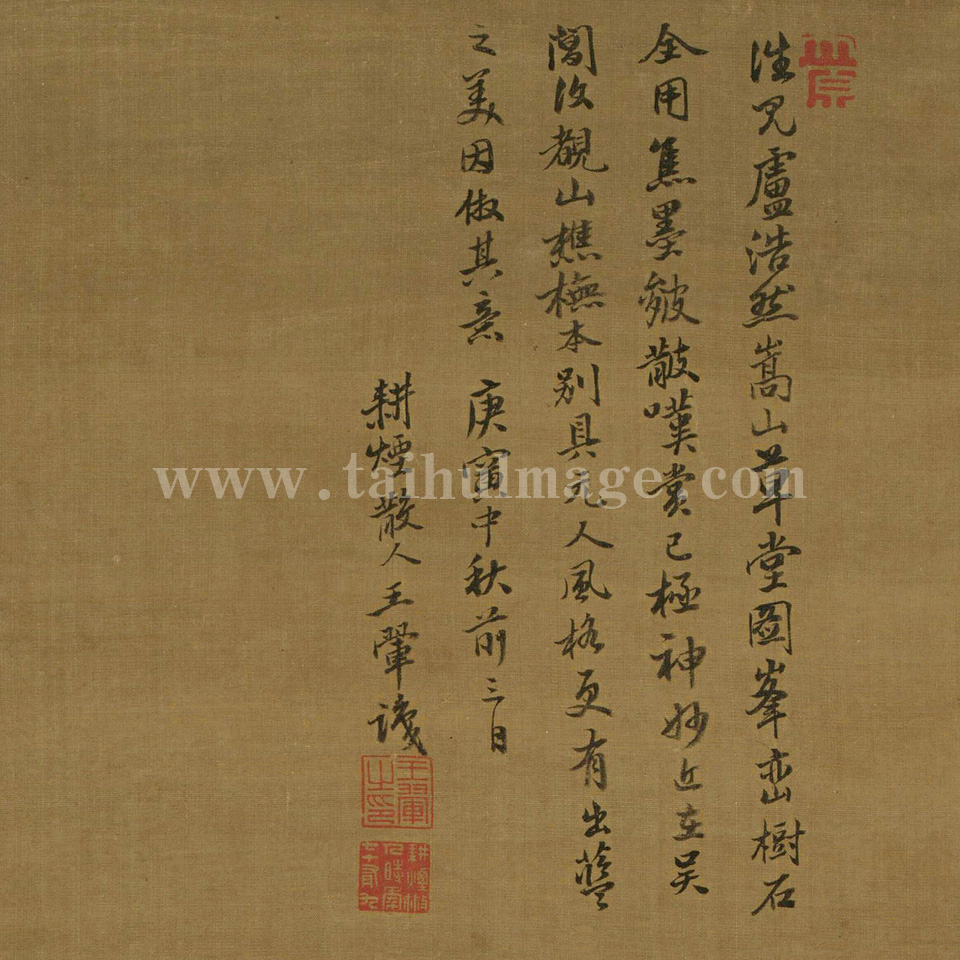 往見盧浩然嵩山草堂圖峯巒樹石
全用焦墨皴皵嘆賞已極神妙近在吴
閶汝觀山樵橅本别具元人風格更有出藍
之美因倣其意 庚寅中秋前三日
耕煙散人王翬識
王翬之印
耕煙散人時年七十有九
www.taihuImage.com